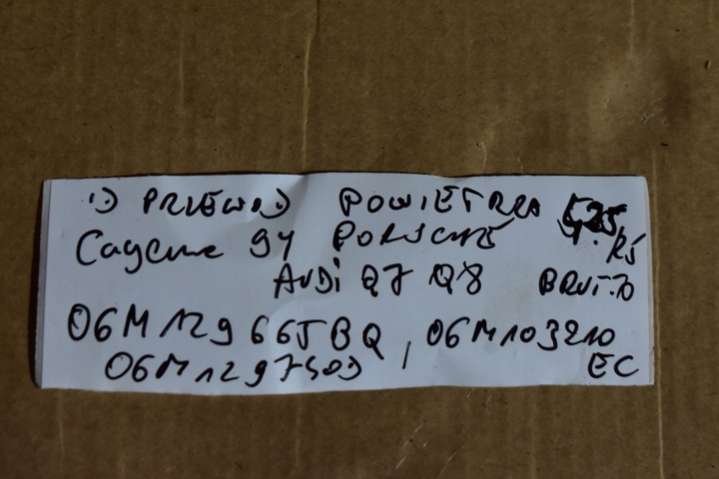 1) PRZEWÓD POWIETRZA
Cayenne 9Y PORSCHE
AUDi Q7 Q8 BRUTTO
06M129665BQ, 06M103210
06M129750J EC